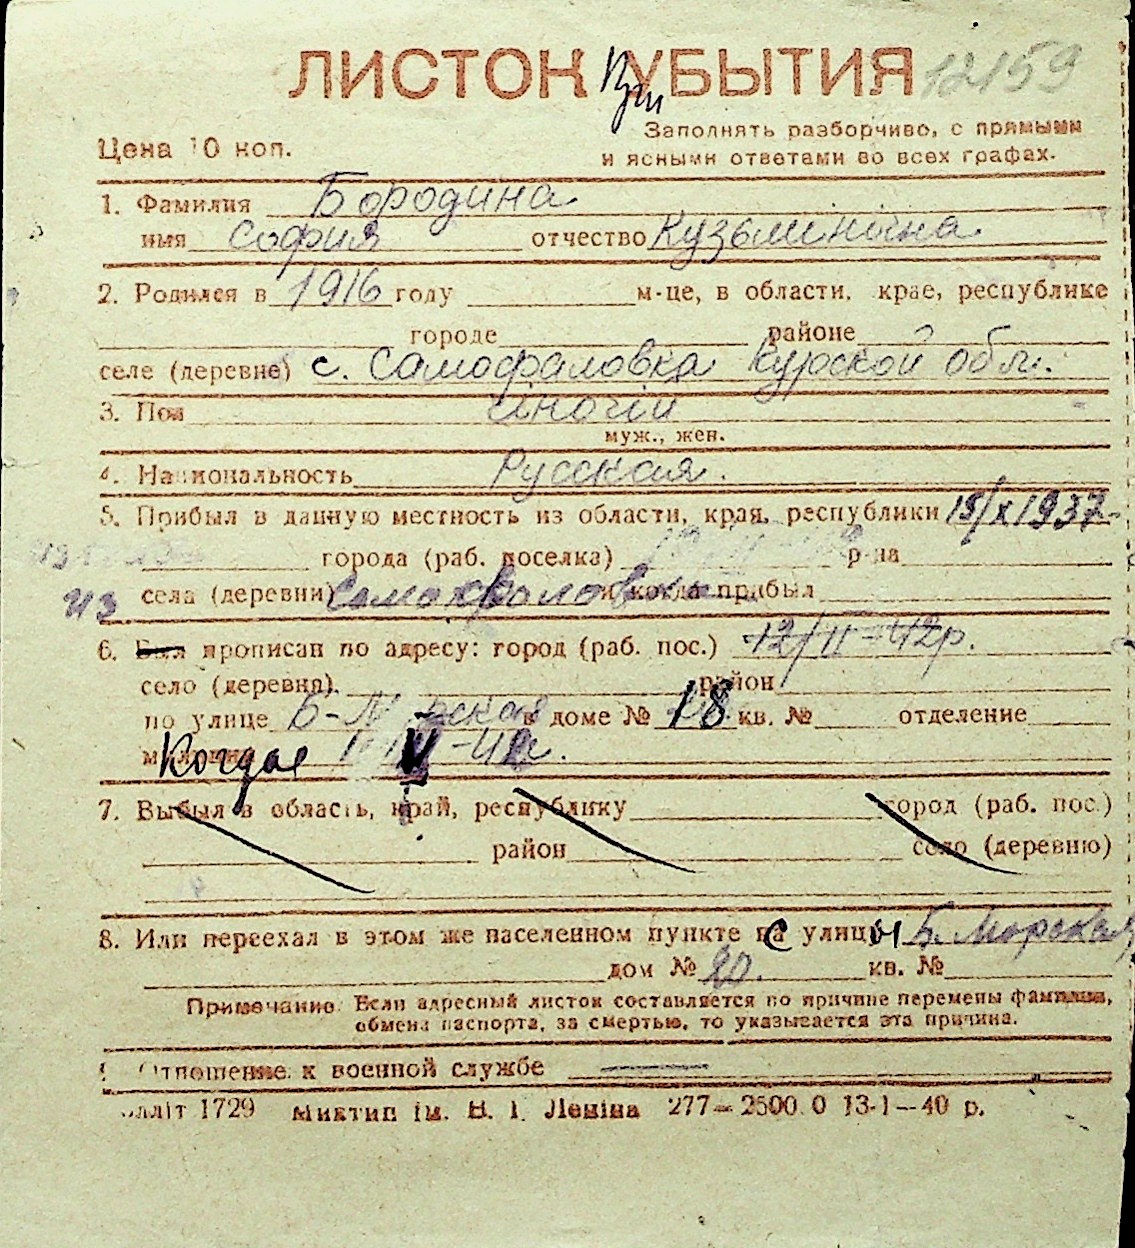 ЛИСТОК УБЫТИЯ 12159
Заполнять разборчиво, с прямыми
Цена 10 коп.
и ясными ответами во всех графах.
1. Фамилия Бородина
имя София отчество Кузьминична
2. Родился в 1916 году м-це, в области, крае, республике
городе районе
селе (деревне) с. Самофаловка Курской обл.
3. Пол жіночій
муж., жен.
4. Национальность Русская.
5. Прибыл в данную местность из области, края, республики 15/X 1937
города (раб. поселка) р-на
из села (деревни) Самофаловки и когда прибыл
6. Был прописан по адресу: город (раб. пос.) 12/II-42р.
село (деревня) район
по улице Б-Морская в доме № 18 кв. № отделение
Когда V-42
7. Выбыл в область, край, республику город (раб. пос.)
район село (деревню)
8. Или переехал в этом же населенном пункте с улицы Б. Морская
дом № 20. кв. №
Примечание. Если адресный листок составляется по причине перемены фамилии,
обмена паспорта, за смертью, то указывается эта причина.
Отношение к военной службе
1729 Миктип ім. В. І. Леніна 277—2500.0 13-I—40 р.